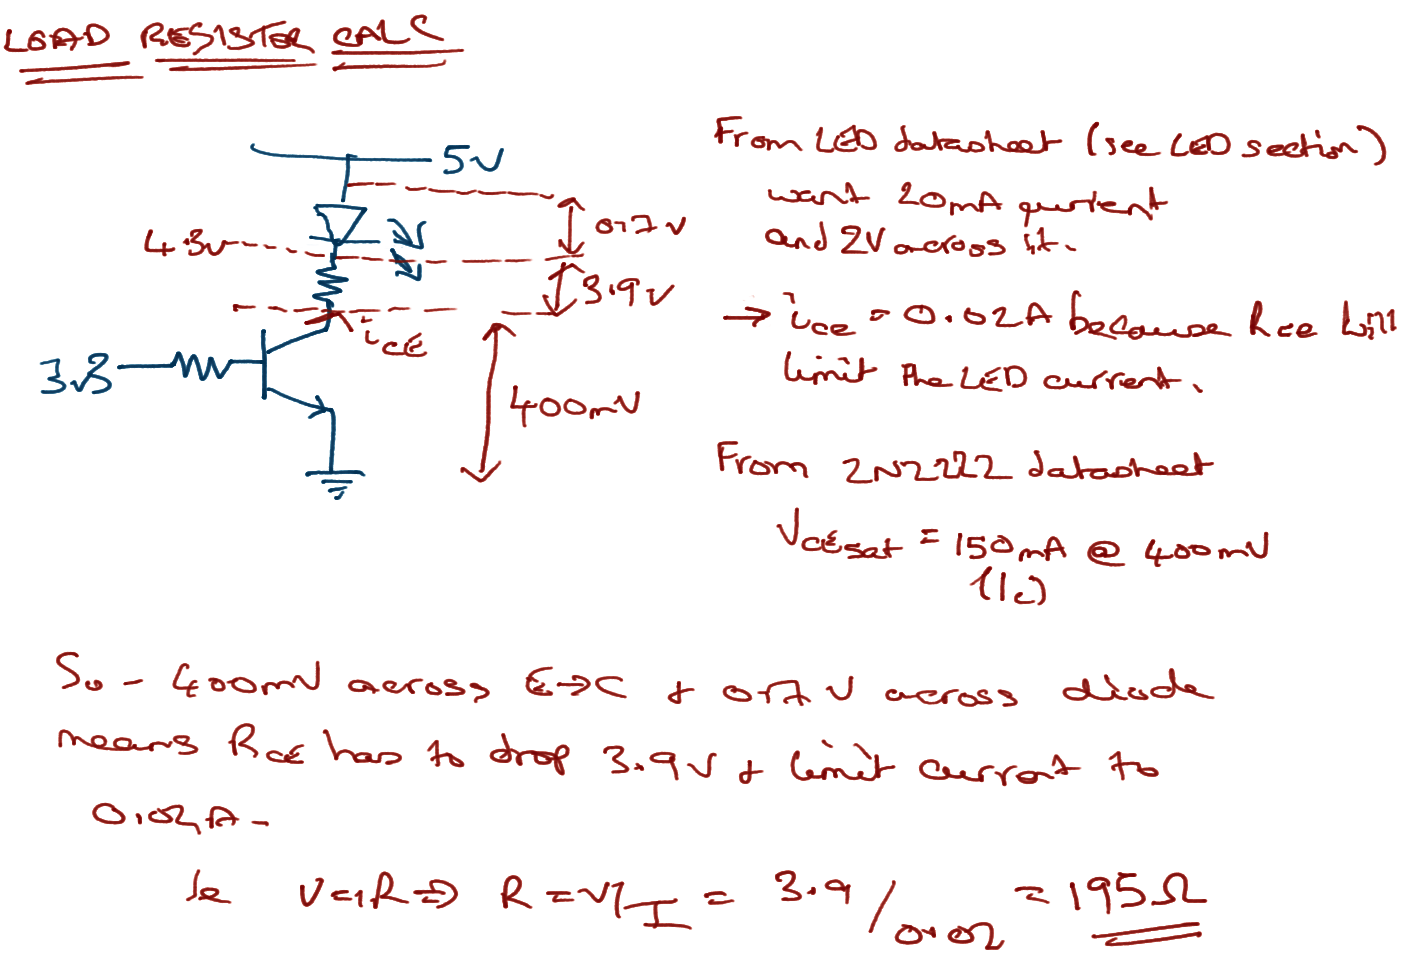 LOAD RESISTER CALC
5V
0.7V
4.3V
3.9V
iCE
3V3
400mV
From LED datasheet (see LED section)
want 20mA current
and 2V across it.
→ ice = 0.02A because Rce will
limit the LED current.
From 2N2222 datasheet
VCEsat = 150mA @ 400mV
(Ic)
So - 400mV across E→C + 0.7V across diode
means RCE has to drop 3.9V + limit current to
0.02A -
Ie V=IR ⇒ R = V/I = 3.9/0.02 = 195Ω